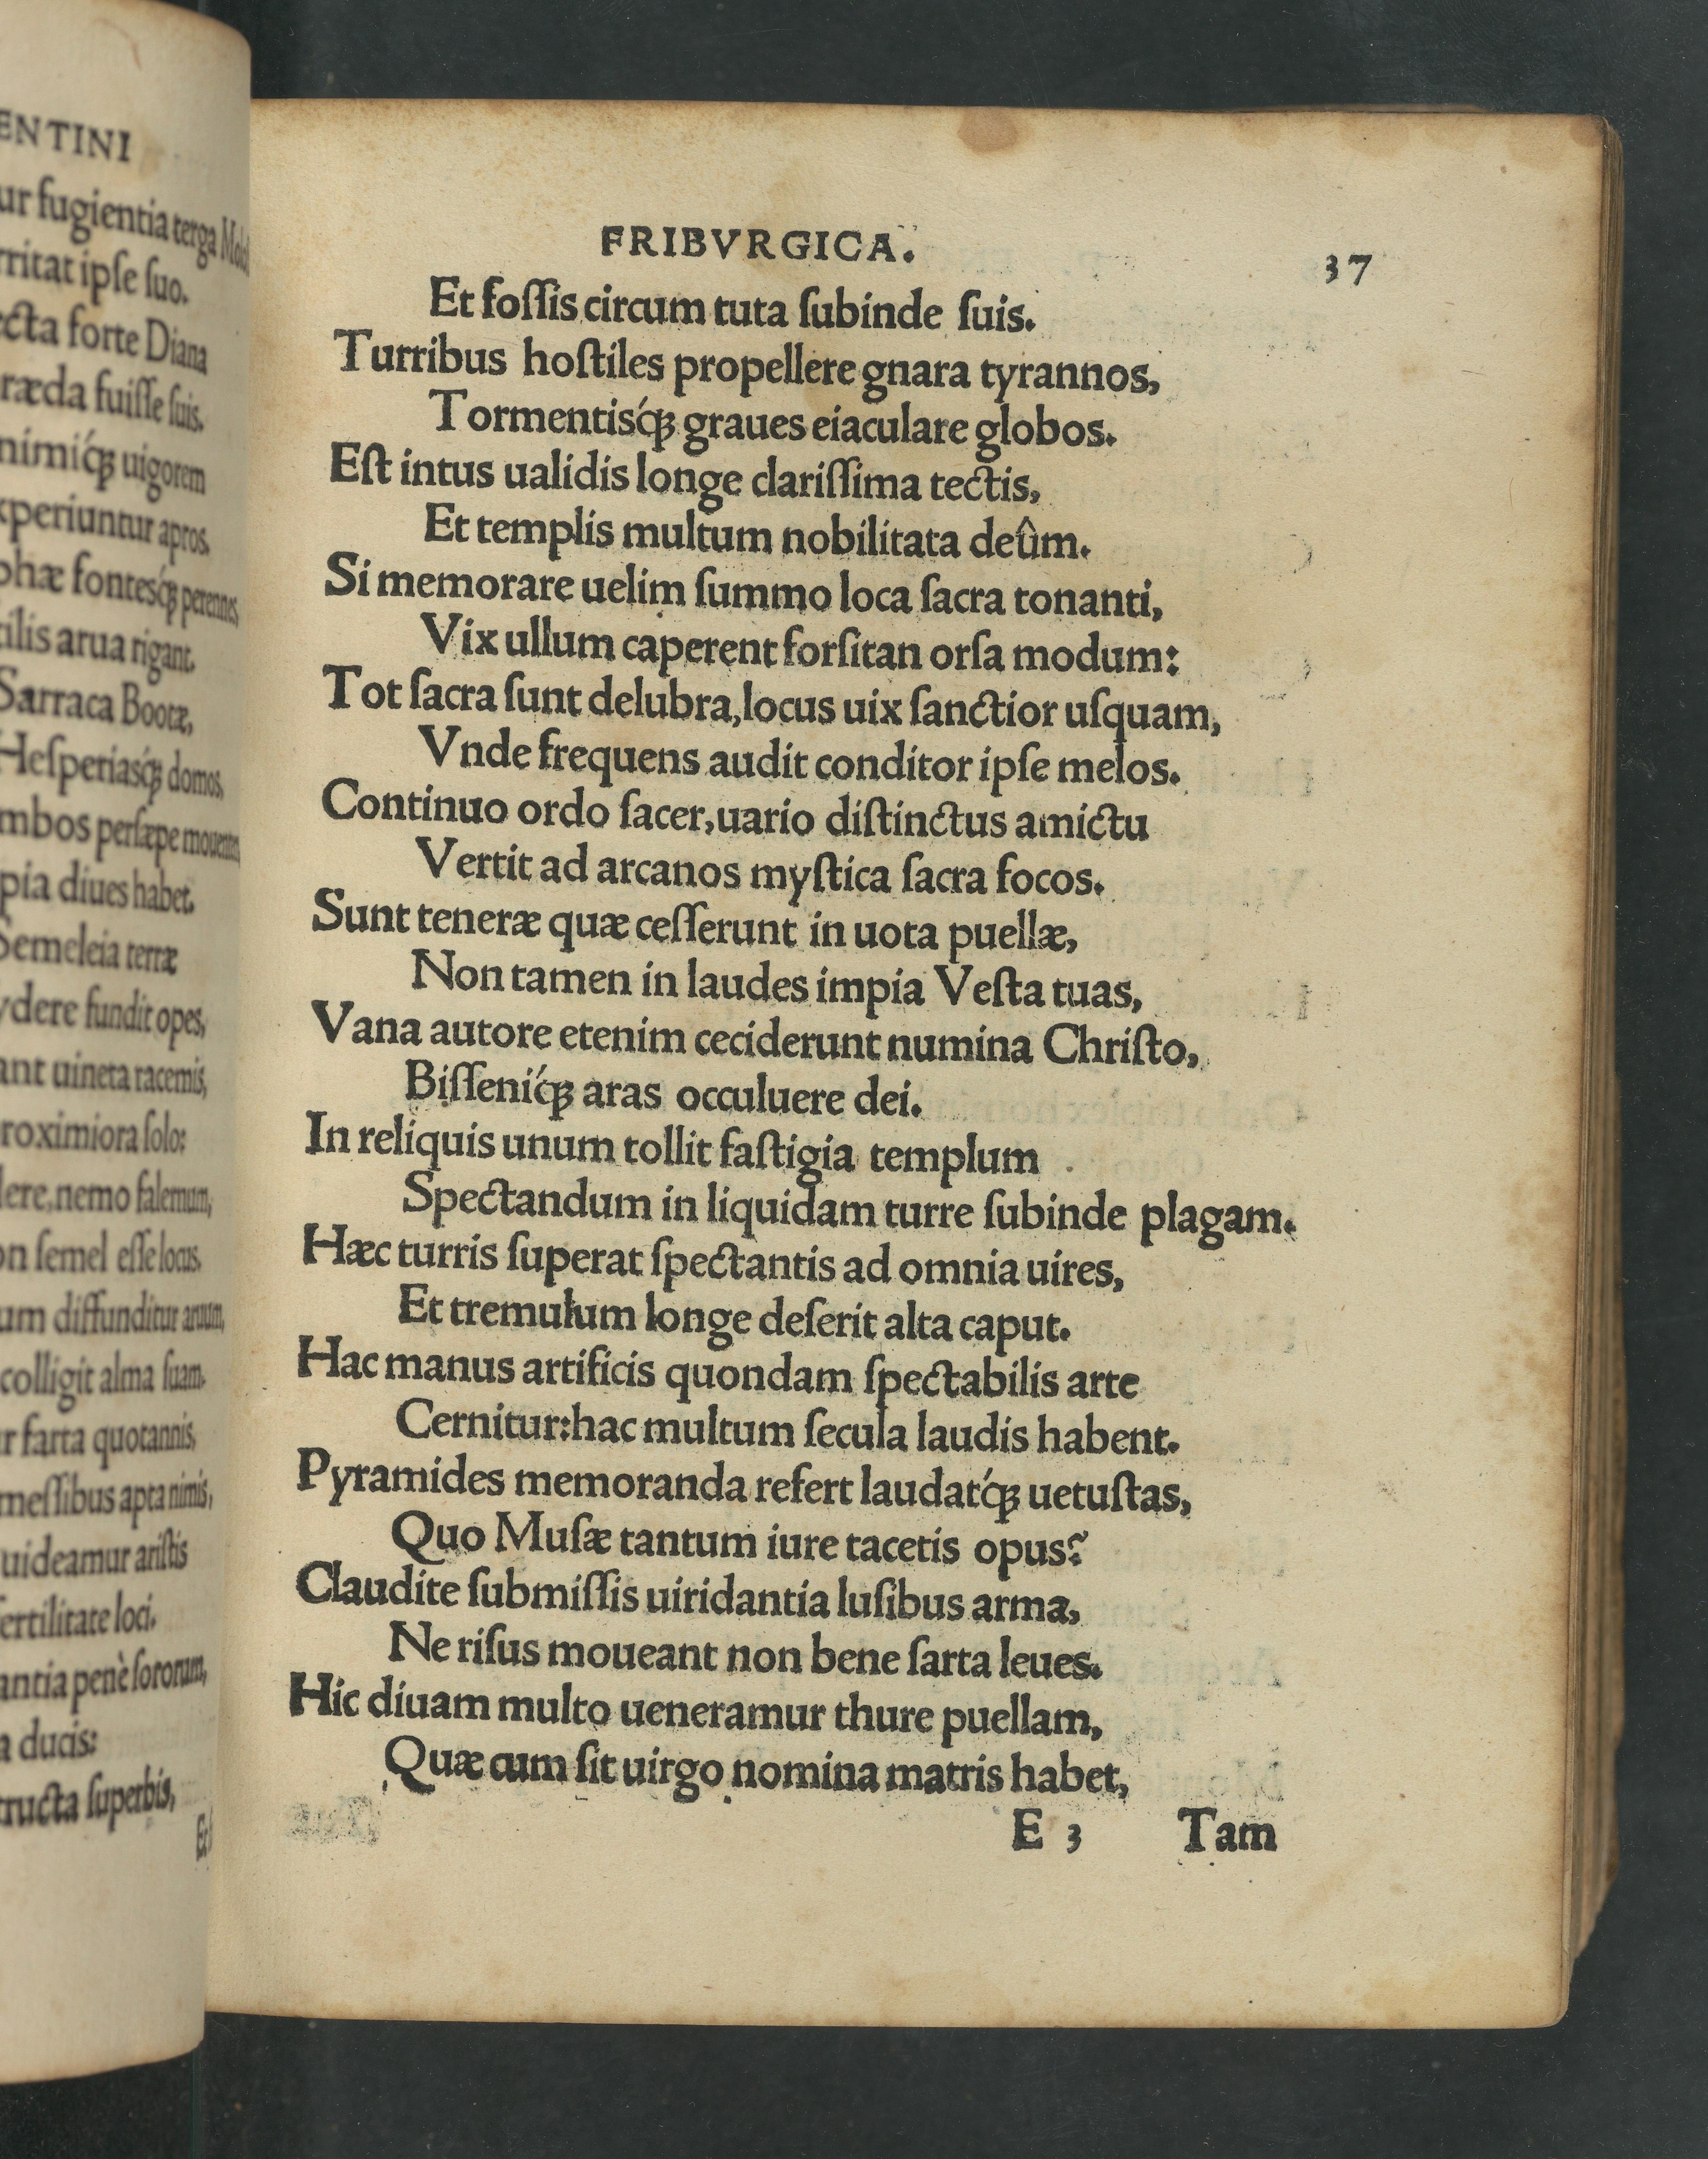 ENTINI
ur fugientia terga
rritat ipſe ſuo.
ecta forte Diana
ræda fuiſſe ſuis.
nimiq́ꝫ uigorem
xperiuntur apros.
phæ fontesq́ꝫ perennes,
tilis arua rigant.
Sarraca Bootæ,
Heſperiasq́ꝫ domos,
mbos perſæpe mouentes,
pia diues habet.
Semeleia terræ
ydere fundit opes,
ant uineta racemis,
roximiora ſolo:
lere, nemo falernum,
on ſemel eſſe locus.
um diffunditur aruum,
colligit alma ſuam.
ur farta quotannis,
meſſibus apta nimis,
uideamur ariſtis
fertilitate loci.
antia penè ſororum,
a ducis:
tructa ſuperbis,
Et
FRIBVRGICA.
37
Et foſſis circum tuta ſubinde ſuis.
Turribus hoſtiles propellere gnara tyrannos,
Tormentisq́ꝫ graues eiaculare globos.
Eſt intus ualidis longe clariſſima tectis,
Et templis multum nobilitata deûm.
Si memorare uelim ſummo loca ſacra tonanti,
Vix ullum caperent forſitan orſa modum:
Tot ſacra ſunt delubra, locus uix ſanctior uſquam,
Vnde frequens audit conditor ipſe melos.
Continuo ordo ſacer, uario diſtinctus amictu
Vertit ad arcanos myſtica ſacra focos.
Sunt teneræ quæ ceſſerunt in uota puellæ,
Non tamen in laudes impia Veſta tuas,
Vana autore etenim ceciderunt numina Chriſto,
Biſſeniq́ꝫ aras occuluere dei.
In reliquis unum tollit faſtigia templum
Spectandum in liquidam turre ſubinde plagam.
Hæc turris ſuperat ſpectantis ad omnia uires,
Et tremulum longe deſerit alta caput.
Hac manus artificis quondam ſpectabilis arte
Cernitur: hac multum ſecula laudis habent.
Pyramides memoranda refert laudatq́ꝫ uetuſtas,
Quo Muſæ tantum iure tacetis opus?
Claudite ſubmiſſis uiridantia luſibus arma,
Ne riſus moueant non bene ſarta leues.
Hic diuam multo ueneramur thure puellam,
Quæ cum ſit uirgo nomina matris habet,
E 3 Tam